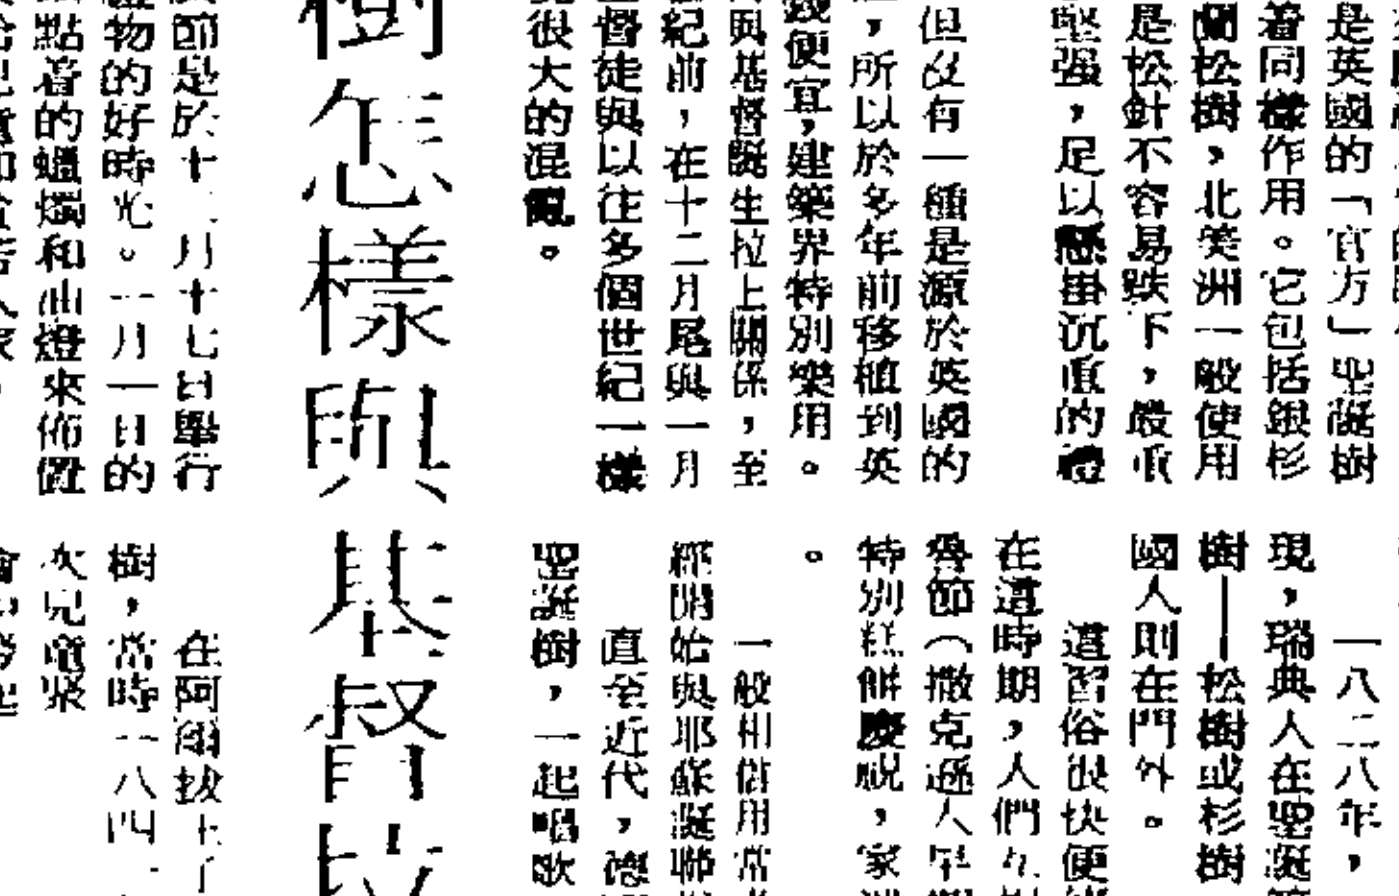 是英國的「官方」聖誕樹
着同樣作用。它包括銀杉
蘭松樹，北美洲一般使用
是松針不容易跌下，最重
堅强，足以懸掛沉重的禮
但沒有一種是源於英國的
，所以於多年前移植到英
錢便宜，建築界特別樂用。
與基督誕生拉上關係，至
紀前，在十二月尾與一月
督徒與以往多個世紀一樣
很大的混亂。
樹怎樣與基督
節是於十二月十七日舉行
物的好時光。一月一日的
點着的蠟燭和油燈來佈置
一八二八年，
現，瑞典人在聖誕
樹——松樹或杉樹
國人則在門外。
這習俗很快便
在這時期，人們
魯節（撒克遜人早
特別糕餅慶祝，家
。
一般相信用常
經開始與耶穌誕聯
直至近代，德
聖誕樹，一起唱歌
在阿爾拔
樹，當時一八四
次兒童聚